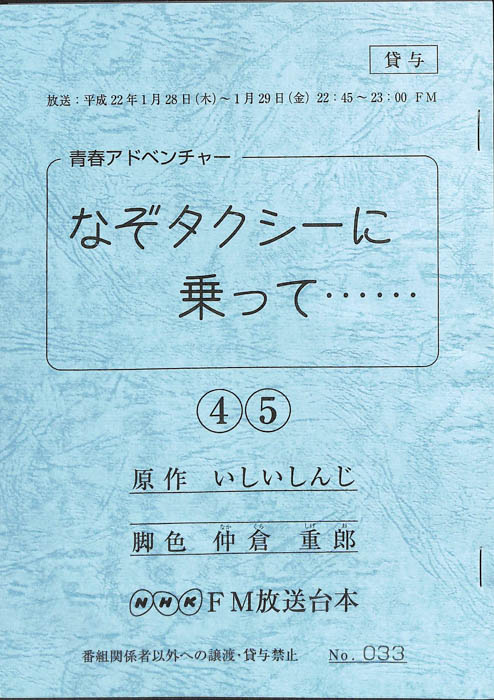 貸与
放送：平成22年1月28日(木)～1月29日(金) 22：45～23：00 FM
青春アドベンチャー
なぞタクシーに
乗って……
④⑤
原作 いしいしんじ
なか くら しげ お
脚色 仲倉 重郎
NHK FM放送台本
番組関係者以外への譲渡・貸与禁止 No. 033